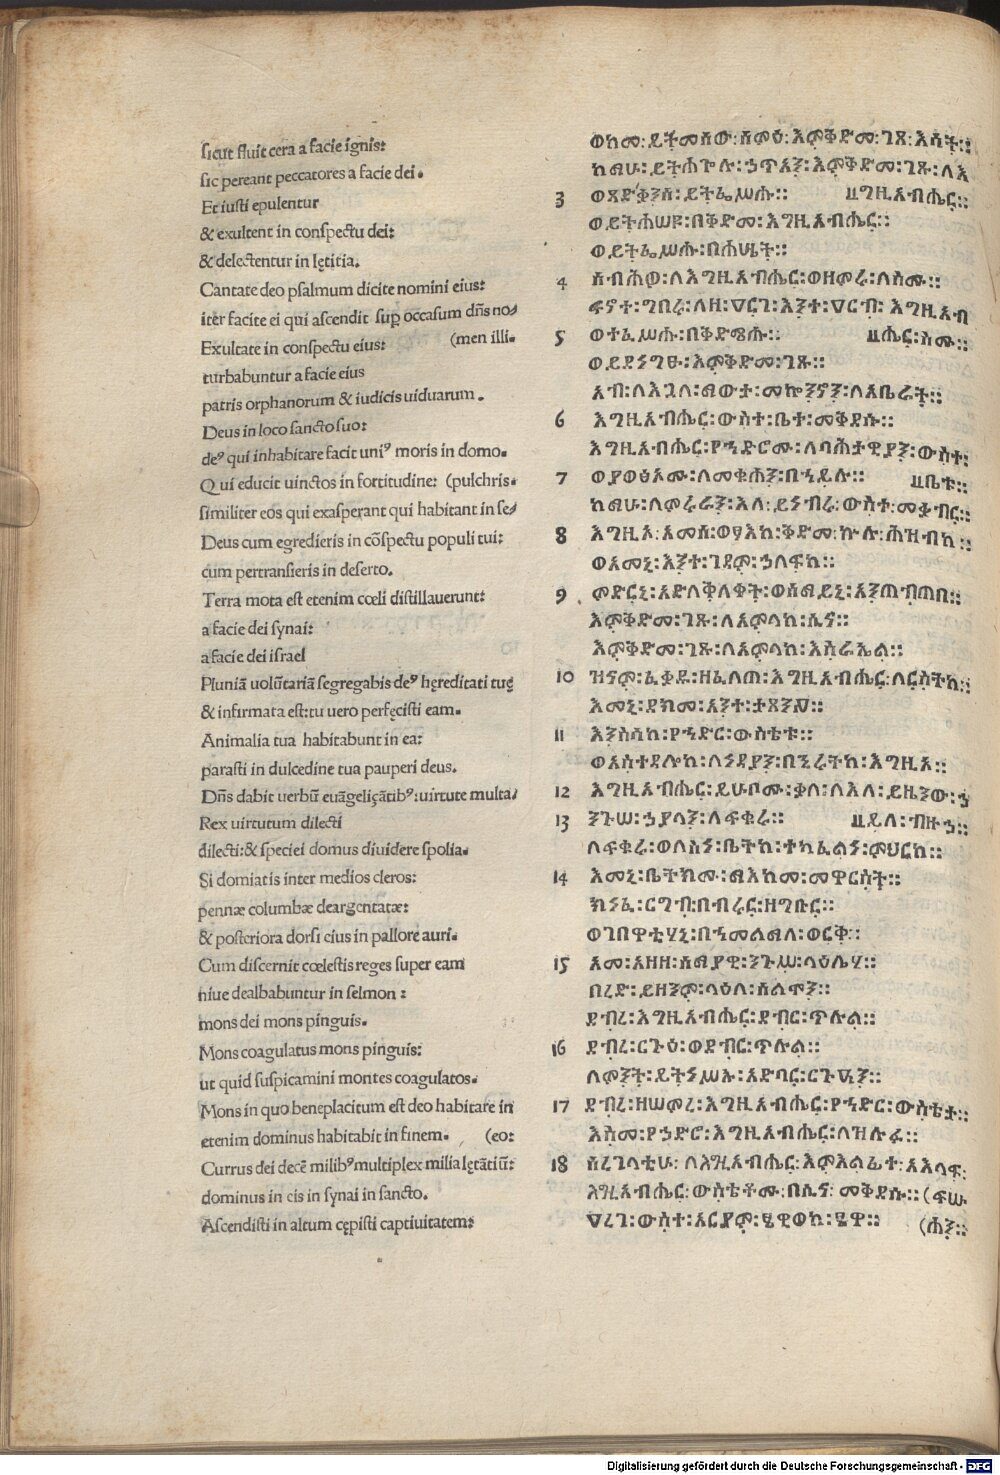 sicut fluit cera a facie ignis:
sic pereant peccatores a facie dei.
Et iusti epulentur
& exultent in conspectu dei:
& delectentur in lętitia.
Cantate deo psalmum dicite nomini eius:
iter facite ei qui ascendit sup occasum dñs no/
Exultate in conspectu eius: (men illi.
turbabuntur a facie eius
patris orphanorum & iudicis uiduarum.
Deus in loco sancto suo:
deꝰ qui inhabitare facit uniꝰ moris in domo.
Qui educit uinctos in fortitudine: (pulchris.
similiter eos qui exasperant qui habitant in se/
Deus cum egredieris in cōspectu populi tui:
cum pertransieris in deserto.
Terra mota est etenim cœli distillauerunt:
a facie dei synai:
a facie dei israel
Pluuiã uolūtariã segregabis deꝰ hęreditati tuę
& infirmata est:tu uero perfęcisti eam.
Animalia tua habitabunt in ea:
parasti in dulcedine tua pauperi deus.
Dñs dabit uerbū euãgeliçãtibꝰ:uirtute multa/
Rex uirtutum dilecti
dilecti:& speciei domus diuidere spolia.
Si dormiatis inter medios cleros:
pennæ columbæ deargentatæ:
& posteriora dorsi eius in pallore auri.
Cum discernit cœlestis reges super eam
niue dealbabuntur in selmon:
mons dei mons pinguis.
Mons coagulatus mons pinguis:
ut quid suspicamini montes coagulatos.
Mons in quo beneplacitum est deo habitare in
etenim dominus habitabit in finem. (eo:
Currus dei decē milibꝰ multiplex milia lętãtiū:
dominus in eis in synai in sancto.
Ascendisti in altum cępisti captiuitatem:
ወከመ፡ይትመሰው፡ሰምዕ፡እምቅድመ፡ገጸ፡እሳት።
ከማሁ፡ይትሐጐሉ፡ኃጥአን፡እምቅድመ፡ገጹ፡ለእ
3 ወጻድቃንሰ፡ይትፌሥሑ። ግዚአብሔር።
ወይትሐሠዩ፡በቅድመ፡እግዚአብሔር።
ወይትፌሥሑ፡በሐሤት።
4 ሰብሑ፡ለእግዚአብሔር፡ወዘምሩ፡ለስሙ።
ፍኖተ፡ግበሩ፡ለዘ፡ዐርገ፡እንተ፡ዐርብ፡እግዚአብ
5 ወተፈሥሑ፡በቅድሜሁ። ሔር፡ስሙ።
ወይደነግፁ፡እምቅድመ፡ገጹ።
አቡ፡ለእጓለ፡ማውታ፡መኰንኖን፡ለአቤራት።
6 እግዚአብሔር፡ውስተ፡ቤተ፡መቅደሱ።
እግዚአብሔር፡ያኀድሮሙ፡ለባሕታዊያን፡ውስተ፡
7 ወያወፅኦሙ፡ለሙቁሐን፡በኀይሉ። ቤቱ።
ከማሁ፡ለምሩራን፡እለ፡ይነብሩ፡ውስተ፡መቃብር።
8 እግዚኦ፡አመሰ፡ወፃእከ፡ቅድመ፡ኵሉ፡ሕዝብከ።
ወአመኒ፡እንተ፡ገዳም፡ኃለፍከ።
9 ምድርኒ፡አድለቅለቀት፡ወሰማይኒ፡አንጠብጠበ።
እምቅድመ፡ገጹ፡ለአምላከ፡ሲና።
እምቅድመ፡ገጹ፡ለአምላከ፡እስራኤል።
10 ዝናም፡ፈቃደ፡ዘፈለጠ፡እግዚአብሔር፡ለርስትከ።
እመኒ፡ደክመ፡አንተ፡ታጸንዖ።
11 እንስሳከ፡የኀድር፡ውስቴቱ።
ወአስተዳሎከ፡ለነዳያን፡በኂሩትከ፡እግዚኦ።
12 እግዚአብሔር፡ይሁቦሙ፡ቃለ፡ለእለ፡ይዜንው፡ኃ
13 ንጉሠ፡ኃያላን፡ለፍቁሩ። ይለ፡ብዙኃ።
ለፍቁሩ፡ወለስነ፡ቤትከ፡ተካፈልነ፡ምህርካ።
14 እመኒ፡ቤትክሙ፡ማእከለ፡መዋርስት።
ክነፈ፡ርግብ፡በብሩር፡ዘግቡር።
ወገበዋቲሃኒ፡በኀመልማለ፡ወርቅ።
15 አመ፡አዘዘ፡ሰማያዊ፡ንጉሥ፡ላዕሌሃ።
በረድ፡ይዘንም፡ላዕለ፡ሰልሞን።
ደብረ፡እግዚአብሔር፡ደብር፡ጥሉል።
16 ደብረ፡ርጉዕ፡ወደብር፡ጥሉል።
ለምንት፡ይትነሥኡ፡አድባር፡ርጉዓን።
17 ደብረ፡ዘሠምረ፡እግዚአብሔር፡የኀድር፡ውስቴታ።
እስመ፡የኃድሮ፡እግዚአብሔር፡ለዝሉፉ።
18 ሰረገላቲሁ፡ለእግዚአብሔር፡እምእልፊተ፡አእላፍ፡
እግዚአብሔር፡ውስቴቶሙ፡በሲና፡መቅደሱ። (ፍሡ
ዐረገ፡ውስተ፡አርያም፡ፄዊወከ፡ፄዋ። (ሓን።